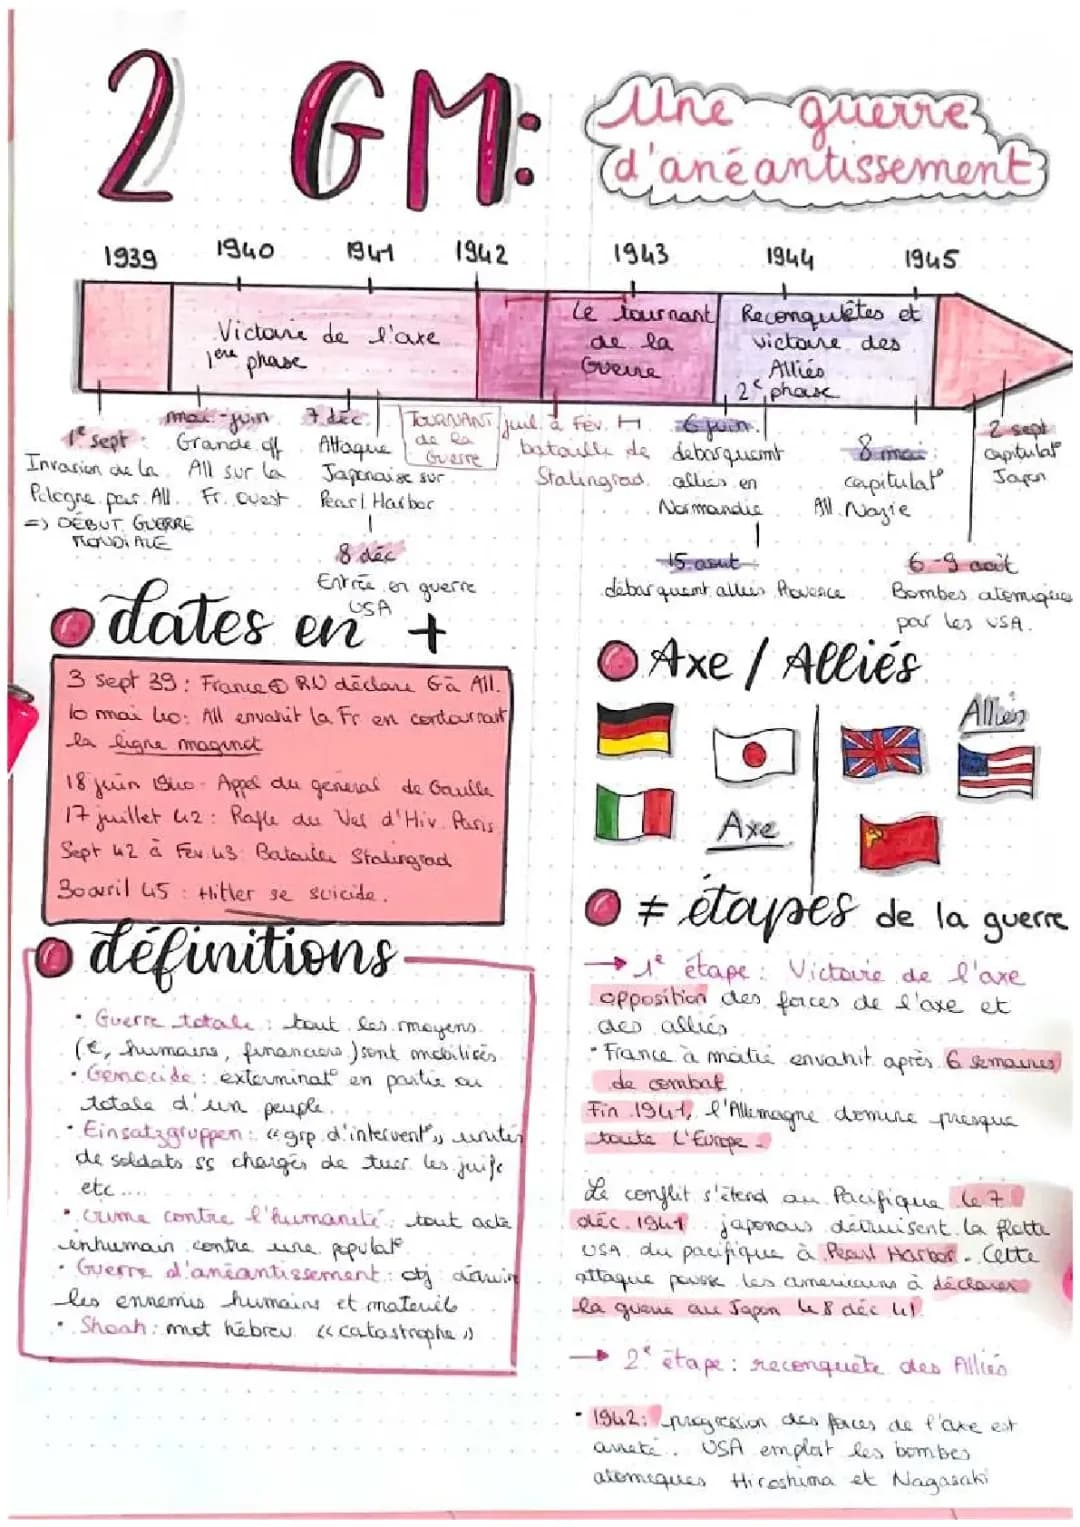 2 GM:
Une guerre
d'anéantissement
1939 1940 1941 1942 1943 1944 1945
Victoire de l'axe
1ère phase
Le tournant
de la
Guerre
Reconquêtes et
victoire des
Alliés
2e phase
1e sept :
Invasion de la
Pologne par All.
=> DÉBUT GUERRE
MONDIALE
mai-juin
Grande off
All sur la
Fr. ouest
7 déc.
Attaque
Japonaise sur
Pearl Harbor
8 déc
Entrée en guerre
USA
TOURNANT
de la
Guerre
juil à Fév. 
bataille de
Stalingrad.
6 juin.
débarquemt
alliés en
Normandie
15 aout
débarquent alliés Provence
8 mai :
capitulat°
All. Nazie
2 sept
capitulat°
Japon
6-9 août
Bombes atomiques
par les USA.
dates en +
3 sept 39 : France ⊕ RU déclare G à All.
10 mai 40: All envahit la Fr en contournant
la ligne maginot
18 juin 1940 - Appel du général de Gaulle
17 juillet 42 : Rafle du Vel d'Hiv. Paris
Sept 42 à Fev 43 Bataille Stalingrad
30 avril 45 : Hitler se suicide.
Axe / Alliés
Alliés
Axe
définitions
• Guerre totale : tout les moyens
(€, humains, financiers) sont mobilisés
• Génocide : exterminat° en partie ou
totale d'un peuple
• Einsatzgruppen : "grp d'intervent°" unités
de soldats ss chargés de tuer les juifs
etc ....
• Crime contre l'humanité : tout acte
inhumain contre une populat°
• Guerre d'anéantissement : obj
les ennemis humains et materiels
• Shoah : mot hébreu « catastrophe »
≠ étapes de la guerre
→ 1e étape : Victoire de l'axe
opposition des forces de l'axe et
des alliés
• France à moitié envahit après 6 semaines
de combat
Fin 1941, l'Allemagne domine presque
toute l'Europe.
Le conflit s'étend au Pacifique le 7
déc. 1941 japonais détruisent la flotte
USA du pacifique à Pearl Harbor. Cette
attaque pousse les américains à déclarer
la guerre au Japon le 8 déc 41.
→ 2e étape : reconquête des Alliés
• 1942 : progression des forces de l'axe est
arreté. USA emploit les bombes
atomiques Hiroshima et Nagasaki